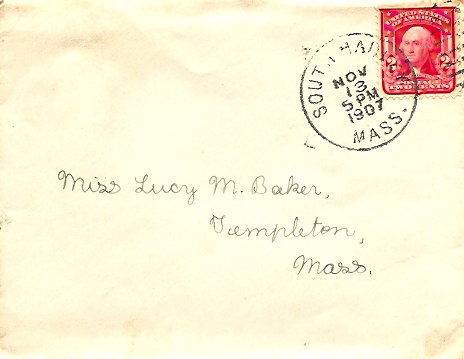 UNITED STATES
OF AMERICA
2 2
POSTAGE
TWO CENTS
SOUTH
NOV
13
5 PM
1907
MASS.
Miss Lucy M. Baker,
Templeton,
Mass.